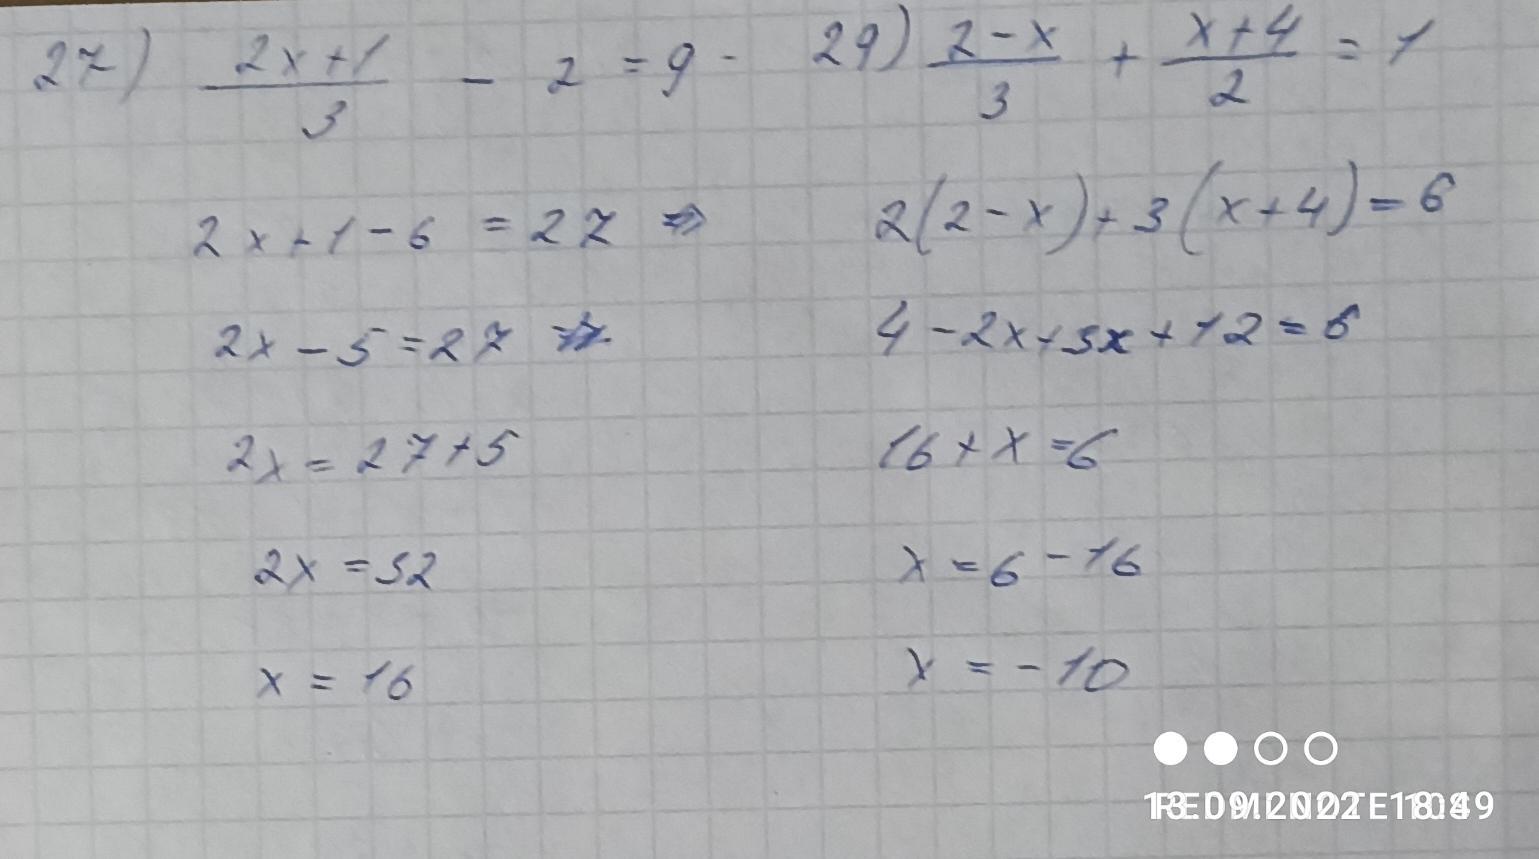 27) (2x+1)/3 - 2 = 9 -
2x+1-6 = 27 =>
2x-5=27
2x = 27+5
2x = 32
x = 16
29) (2-x)/3 + (x+4)/2 = 1
2(2-x)+3(x+4)=6
4-2x+3x+12=6
16+x=6
x=6-16
x = -10